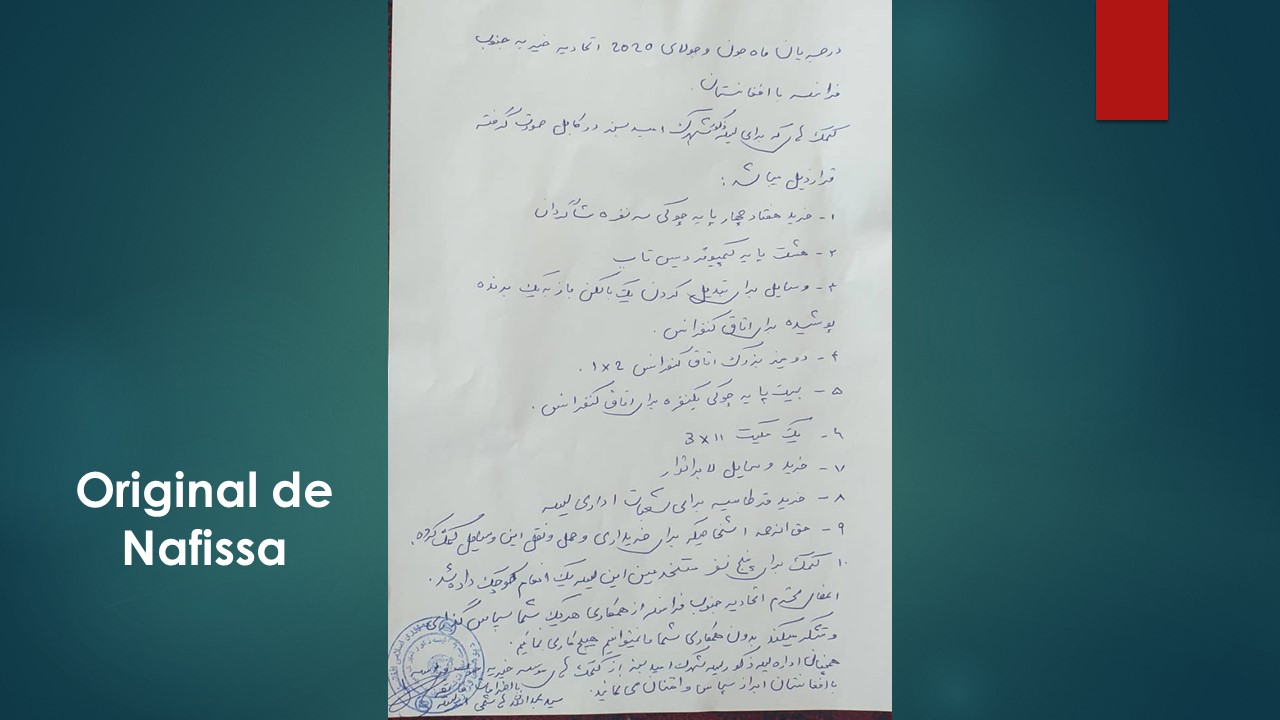 درجریان ماه جون و جولای 2020 اتحادیه خیریه جنوب
فرانسه با افغانستان .
کمک های که برای لیسه ذکور شهرک امید سبز در کابل صورت گرفته
قرار ذیل میباشد :
۱- خرید هفتاد چهار پایه چوکی سه نفره شاگردان
۲- هشت پایه کمپیوتر دیس تاب
۳- وسایل برای تبدیل کردن یک بالکن باز به یک برنده
پوشیده برای اتاق کنفرانس .
۴- دو میز بزرگ اتاق کنفرانس 2×1 .
۵- بیست پایه چوکی یکنفره برای اتاق کنفرانس .
۶- یک 3×11
۷- خرید وسایل لابراتوار
۸- خرید قرطاسیه برای شعبات اداری لیسه
۹- حق الزحمه اشخاصیکه برای خریداری و حمل ونقل این وسایل کمک کرده.
۱۰ کمک برای پنج نفر مستخدمین این لیسه یک انعام کوچک داده شد.
اعضای محترم اتحادیه جنوب فرانسه از همکاری هریک شما سپاس گذاری
و تشکر میکند بدون همکاری شما ما نمیتوانیم هیچ کاری نمائیم.
همچنان اداره لیسه ذکور شهرک امید سبز از کمک های موسسه خیریه
با افغانستان ابراز سپاس و امتنان می نمائید.
با احترام
Original de
Nafissa